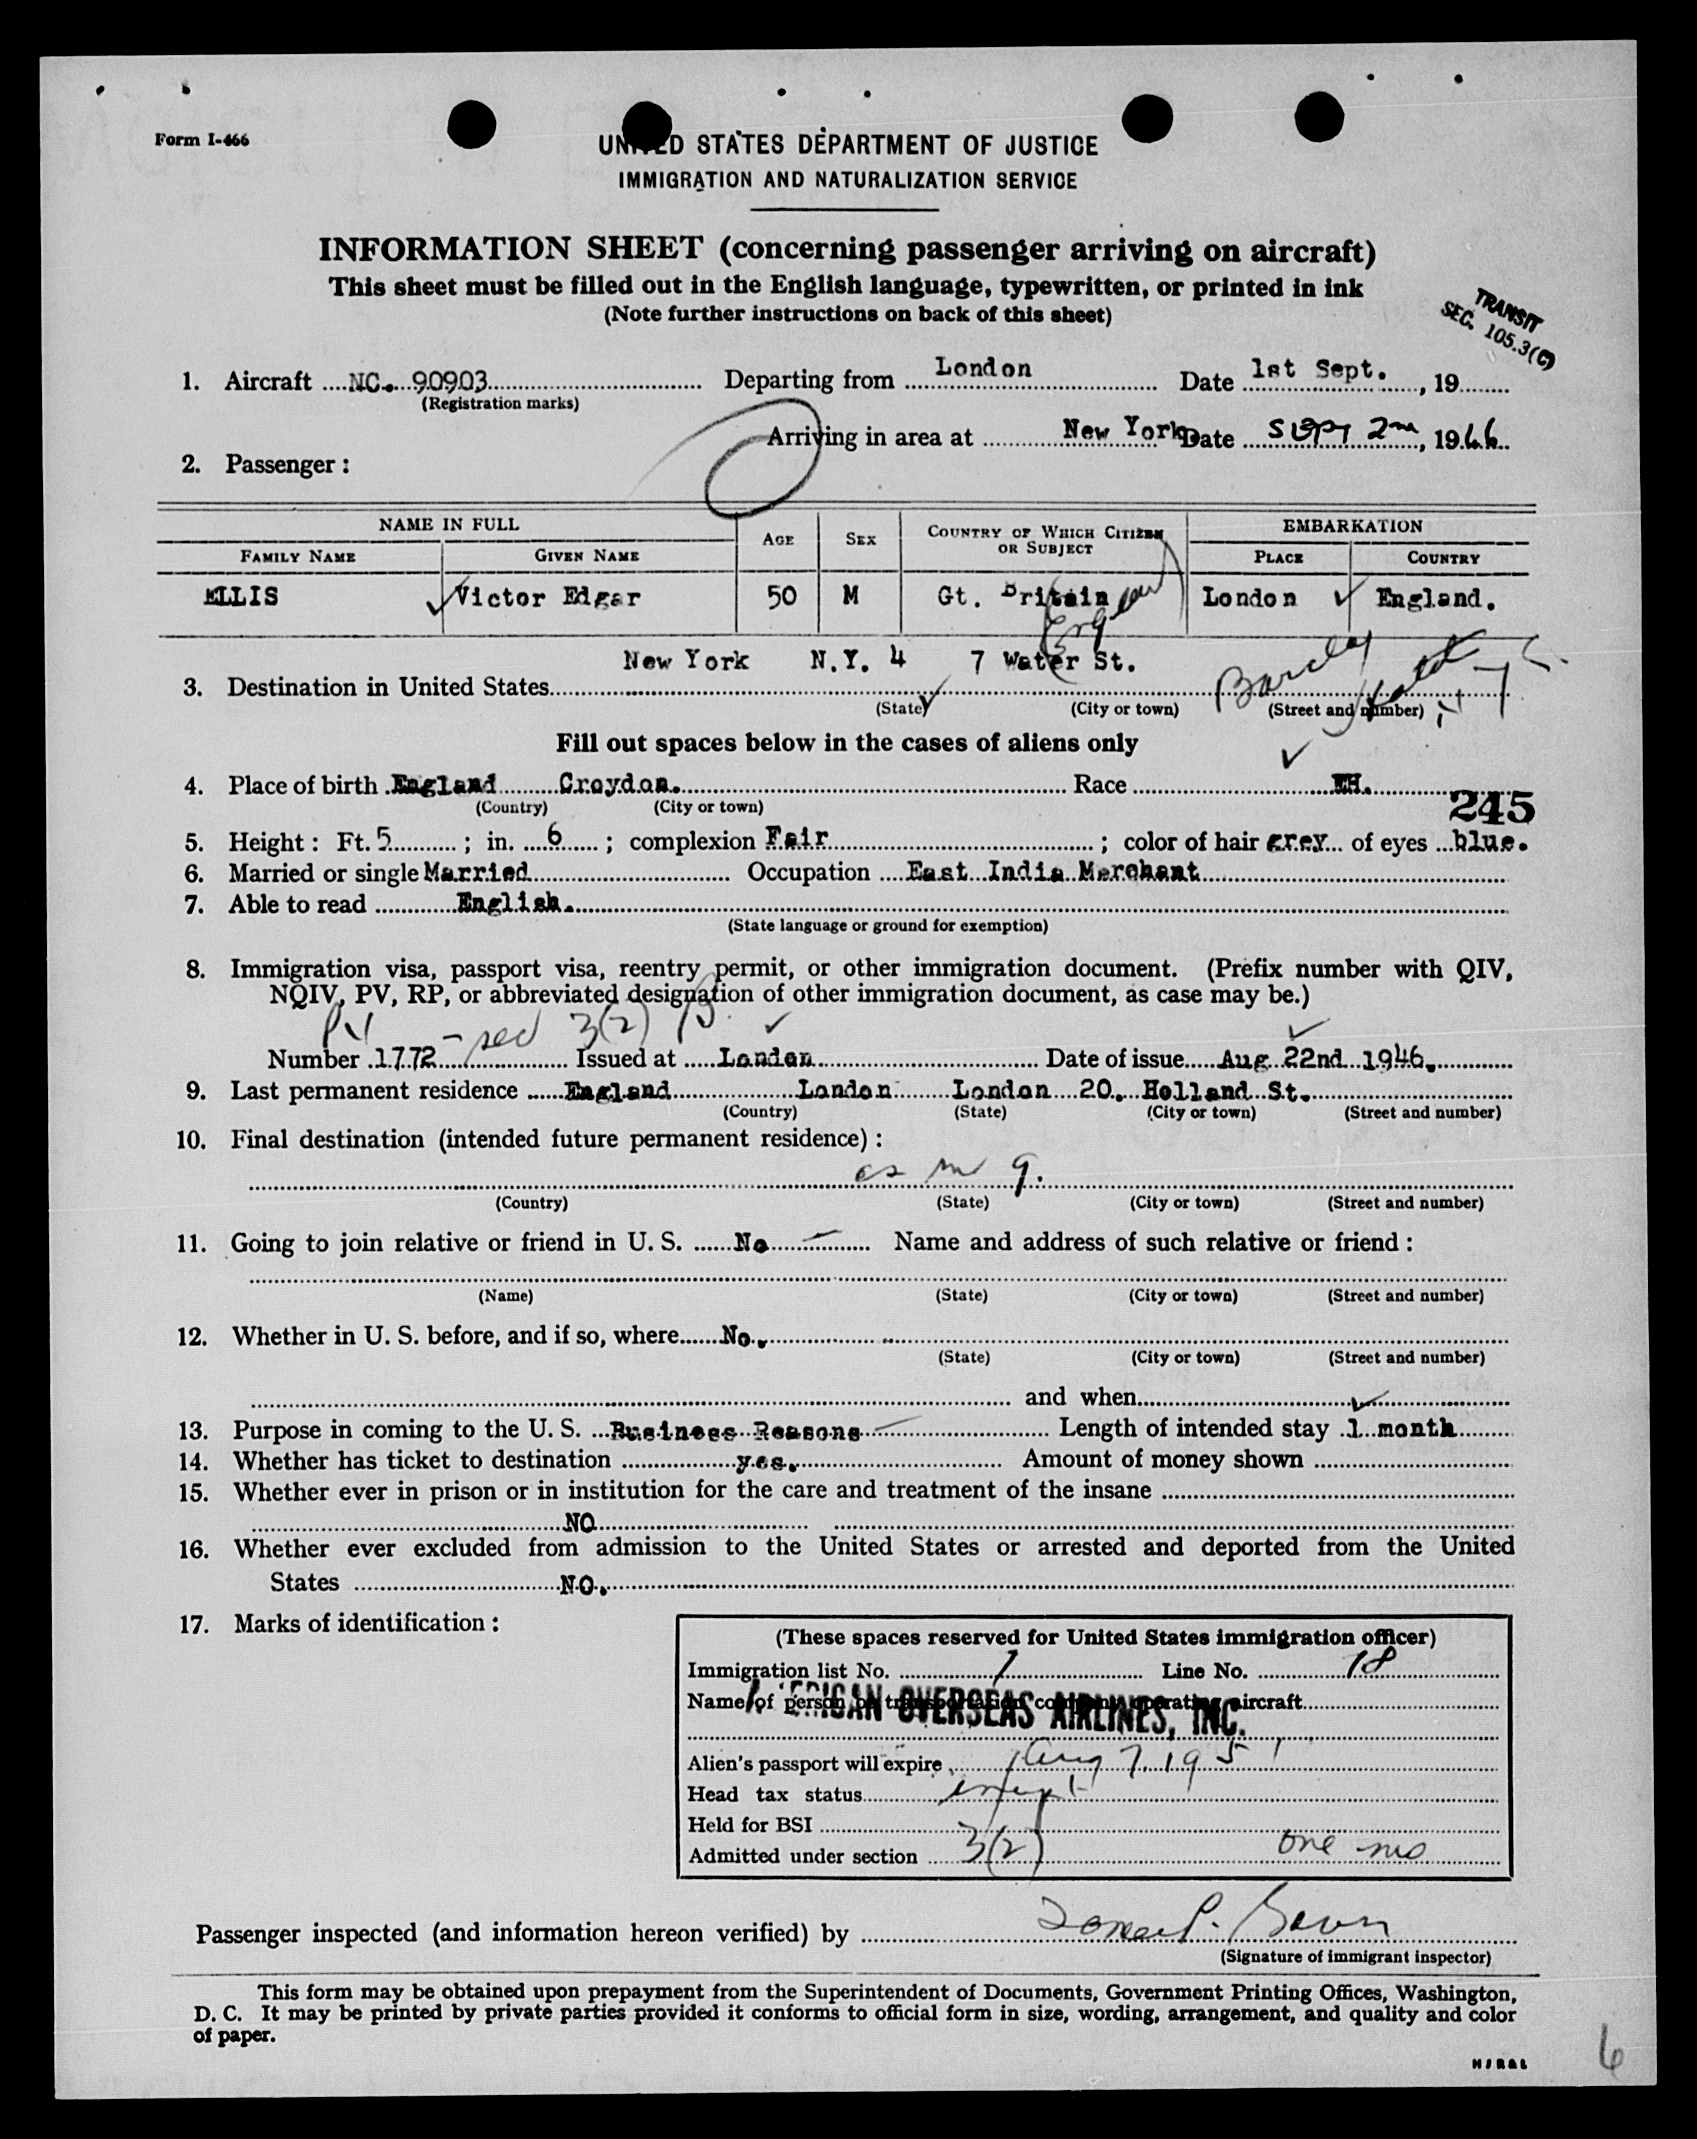 Form I-466
UNITED STATES DEPARTMENT OF JUSTICE
IMMIGRATION AND NATURALIZATION SERVICE
INFORMATION SHEET (concerning passenger arriving on aircraft)
This sheet must be filled out in the English language, typewritten, or printed in ink
(Note further instructions on back of this sheet)
TRANSIT
SEC. 105.3(C)
1. Aircraft NC. 90903 Departing from London Date 1st Sept., 19
(Registration marks)
Arriving in area at New York Date Sept 2nd, 1946
2. Passenger:
NAME IN FULL AGE SEX COUNTRY OF WHICH CITIZEN OR SUBJECT EMBARKATION
FAMILY NAME GIVEN NAME PLACE COUNTRY
ELLIS Victor Edgar 50 M Gt. Britain London England.
England
New York N.Y. 4 7 Water St.
3. Destination in United States
Barclay
(State) (City or town) (Street and number)
Fill out spaces below in the cases of aliens only
4. Place of birth England Croydon. Race WH.
(Country) (City or town)
245
5. Height: Ft. 5; in. 6; complexion Fair; color of hair grey of eyes blue.
6. Married or single Married Occupation East India Merchant
7. Able to read English.
(State language or ground for exemption)
8. Immigration visa, passport visa, reentry permit, or other immigration document. (Prefix number with QIV,
NQIV, PV, RP, or abbreviated designation of other immigration document, as case may be.)
PV - sec 3(2) B.
Number 1772 Issued at London Date of issue Aug 22nd 1946.
9. Last permanent residence England London London 20. Holland St.
(Country) (State) (City or town) (Street and number)
10. Final destination (intended future permanent residence):
as in 9.
(Country) (State) (City or town) (Street and number)
11. Going to join relative or friend in U. S. No Name and address of such relative or friend:
(Name) (State) (City or town) (Street and number)
12. Whether in U. S. before, and if so, where No.
(State) (City or town) (Street and number)
and when
13. Purpose in coming to the U. S. Business Reasons Length of intended stay 1 month
14. Whether has ticket to destination yes. Amount of money shown
15. Whether ever in prison or in institution for the care and treatment of the insane
NO
16. Whether ever excluded from admission to the United States or arrested and deported from the United
States NO.
17. Marks of identification:
(These spaces reserved for United States immigration officer)
Immigration list No. 1 Line No. 18
Name of person or transportation company operating aircraft
AMERICAN OVERSEAS AIRLINES, INC.
Alien's passport will expire Aug 7, 1951
Head tax status exempt
Held for BSI
Admitted under section 3(2) one mo
Passenger inspected (and information hereon verified) by
(Signature of immigrant inspector)
This form may be obtained upon prepayment from the Superintendent of Documents, Government Printing Offices, Washington,
D. C. It may be printed by private parties provided it conforms to official form in size, wording, arrangement, and quality and color
of paper.
6